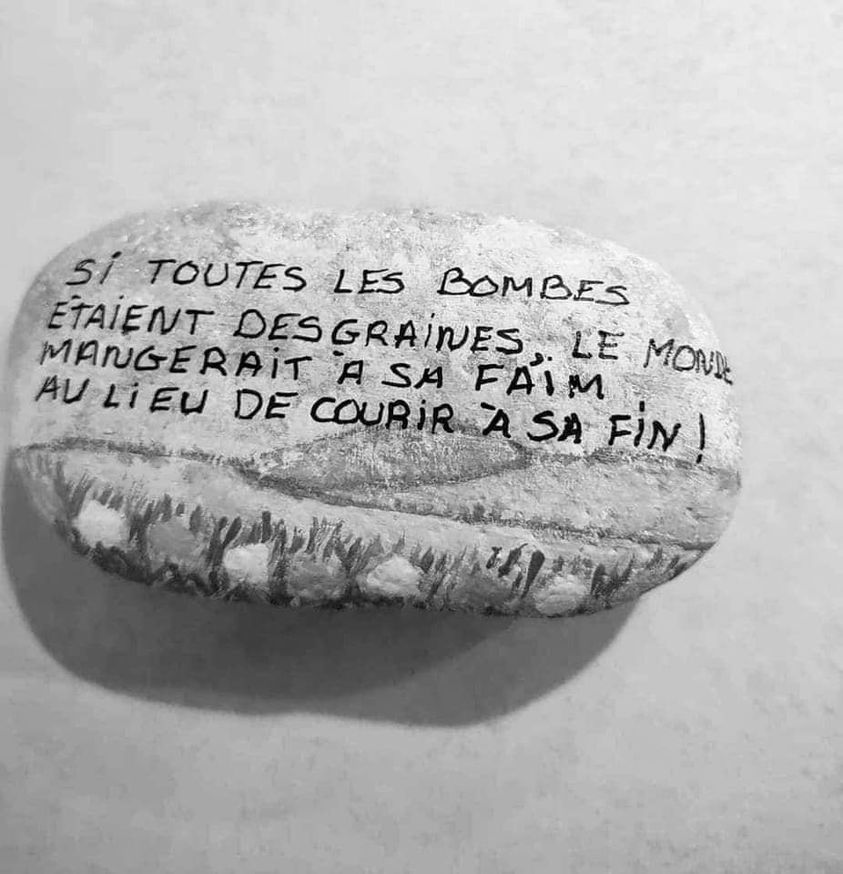 Si TOUTES LES BOMBES
ÉTAiENT DES GRAiNES, LE MONDE
MANGERAiT À SA FAiM
AU LiEU DE COURiR À SA FiN !